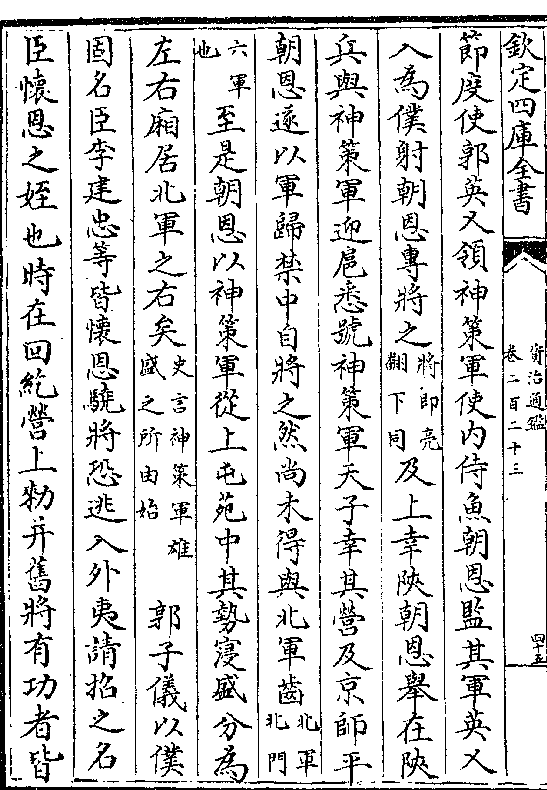 欽定四庫全書
資治通鑑
卷二百二十三
四十五
節度使郭英乂領神策軍使内侍魚朝恩監其軍英乂
入為僕射朝恩專將之將即亮翻下同及上幸陜朝恩舉在陜
兵與神策軍迎扈悉號神策軍天子幸其營及京師平
朝恩遂以軍歸禁中自將之然尚未得與北軍齒北軍北門
六軍也至是朝恩以神策軍從上屯苑中其勢寖盛分為
左右廂居北軍之右矣史言神策軍雄盛之所由始 郭子儀以僕
固名臣李建忠等皆懷恩驍將恐逃入外夷請招之名
臣懷恩之姪也時在回紇營上勑并舊將有功者皆